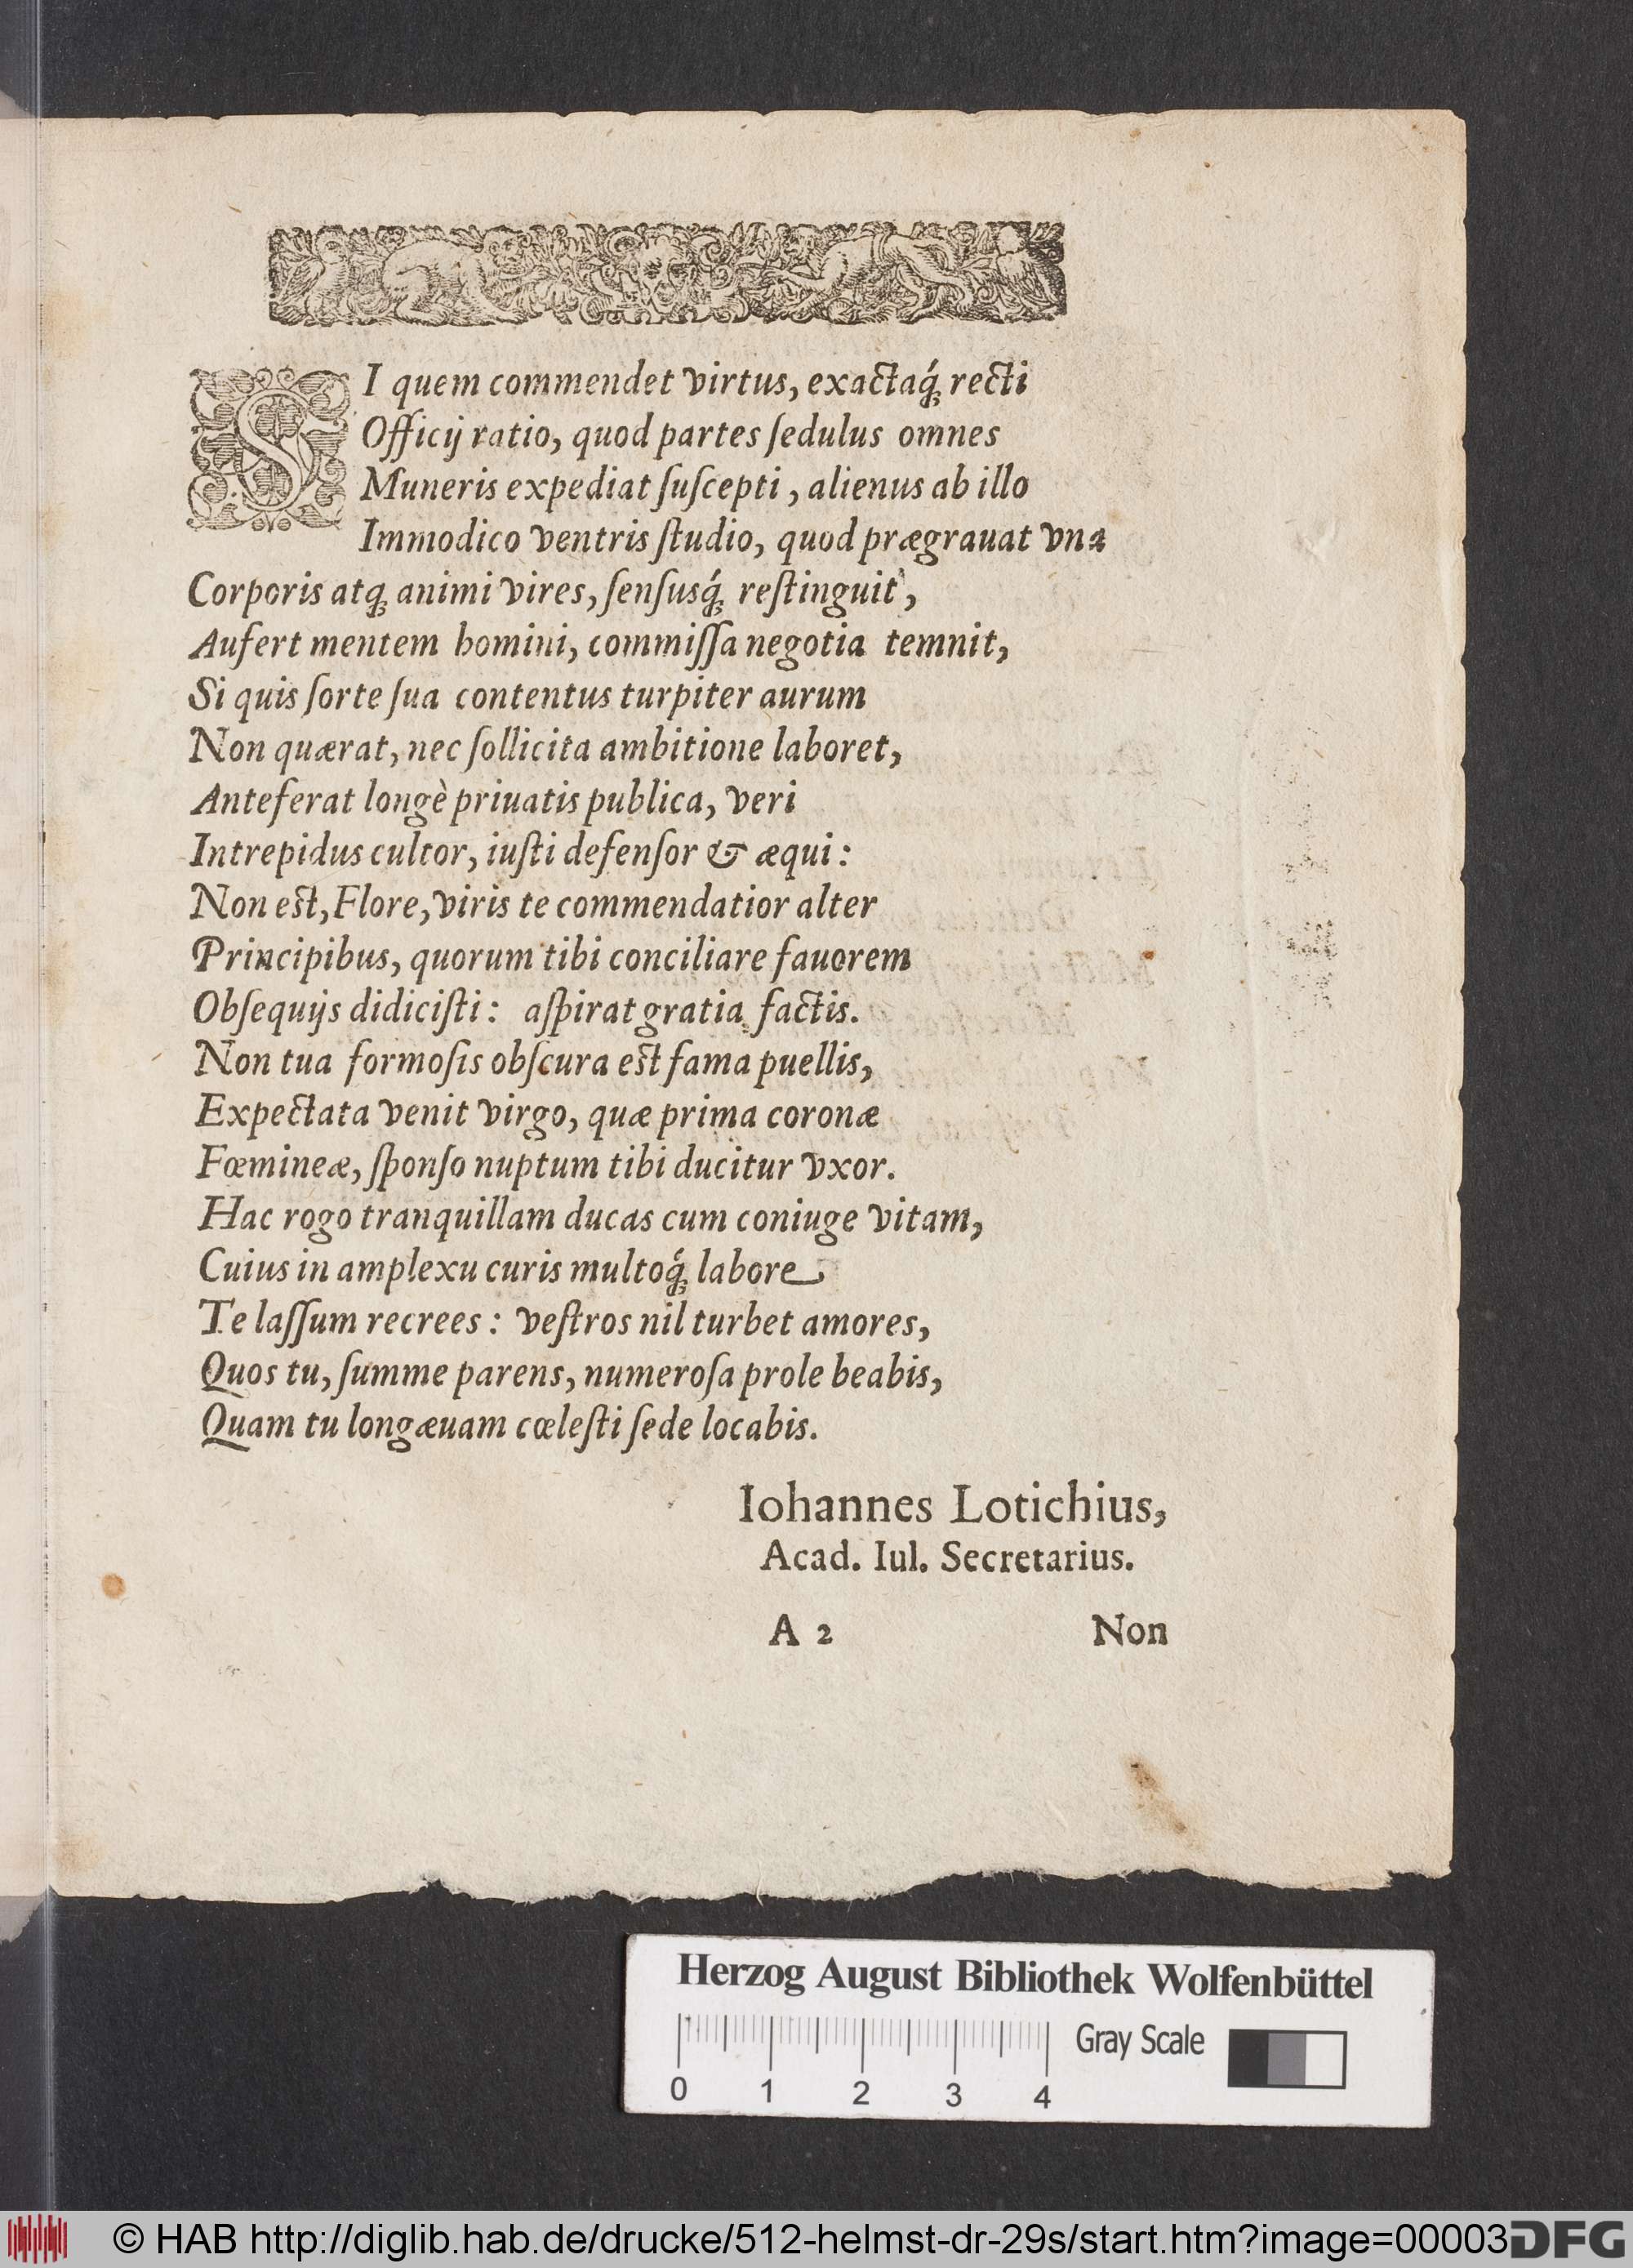 SI quem commendet virtus, exactaq́; recti
Officij ratio, quod partes ſedulus omnes
Muneris expediat ſuſcepti, alienus ab illo
Immodico ventris ſtudio, quod prægrauat vna
Corporis atq; animi vires, ſenſusq́; reſtinguit,
Aufert mentem homini, commiſſa negotia temnit,
Si quis ſorte ſua contentus turpiter aurum
Non quærat, nec ſollicita ambitione laboret,
Anteferat longè priuatis publica, veri
Intrepidus cultor, iuſti defenſor & æqui:
Non eſt, Flore, viris te commendatior alter
Principibus, quorum tibi conciliare fauorem
Obſequijs didiciſti: aſpirat gratia factis.
Non tua formoſis obſcura eſt fama puellis,
Expectata venit virgo, quæ prima coronæ
Fœmineæ, ſponſo nuptum tibi ducitur vxor.
Hac rogo tranquillam ducas cum coniuge vitam,
Cuius in amplexu curis multoq́; labore
Te laſſum recrees: veſtros nil turbet amores,
Quos tu, ſumme parens, numeroſa prole beabis,
Quam tu longæuam cœleſti ſede locabis.
Iohannes Lotichius,
Acad. Iul. Secretarius.
A 2 Non
Herzog August Bibliothek Wolfenbüttel
0 1 2 3 4 Gray Scale
© HAB http://diglib.hab.de/drucke/512-helmst-dr-29s/start.htm?image=00003 DFG